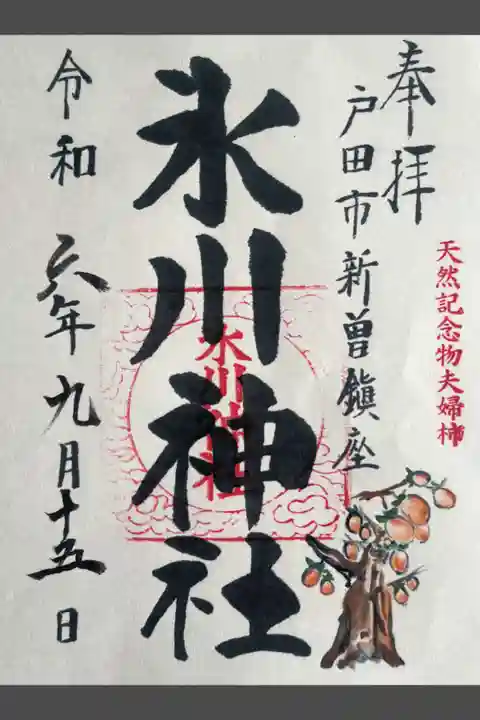 奉拝
戸田市新曽鎮座
天然記念物夫婦柿
氷川神社
氷川神社
令和六年九月十五日